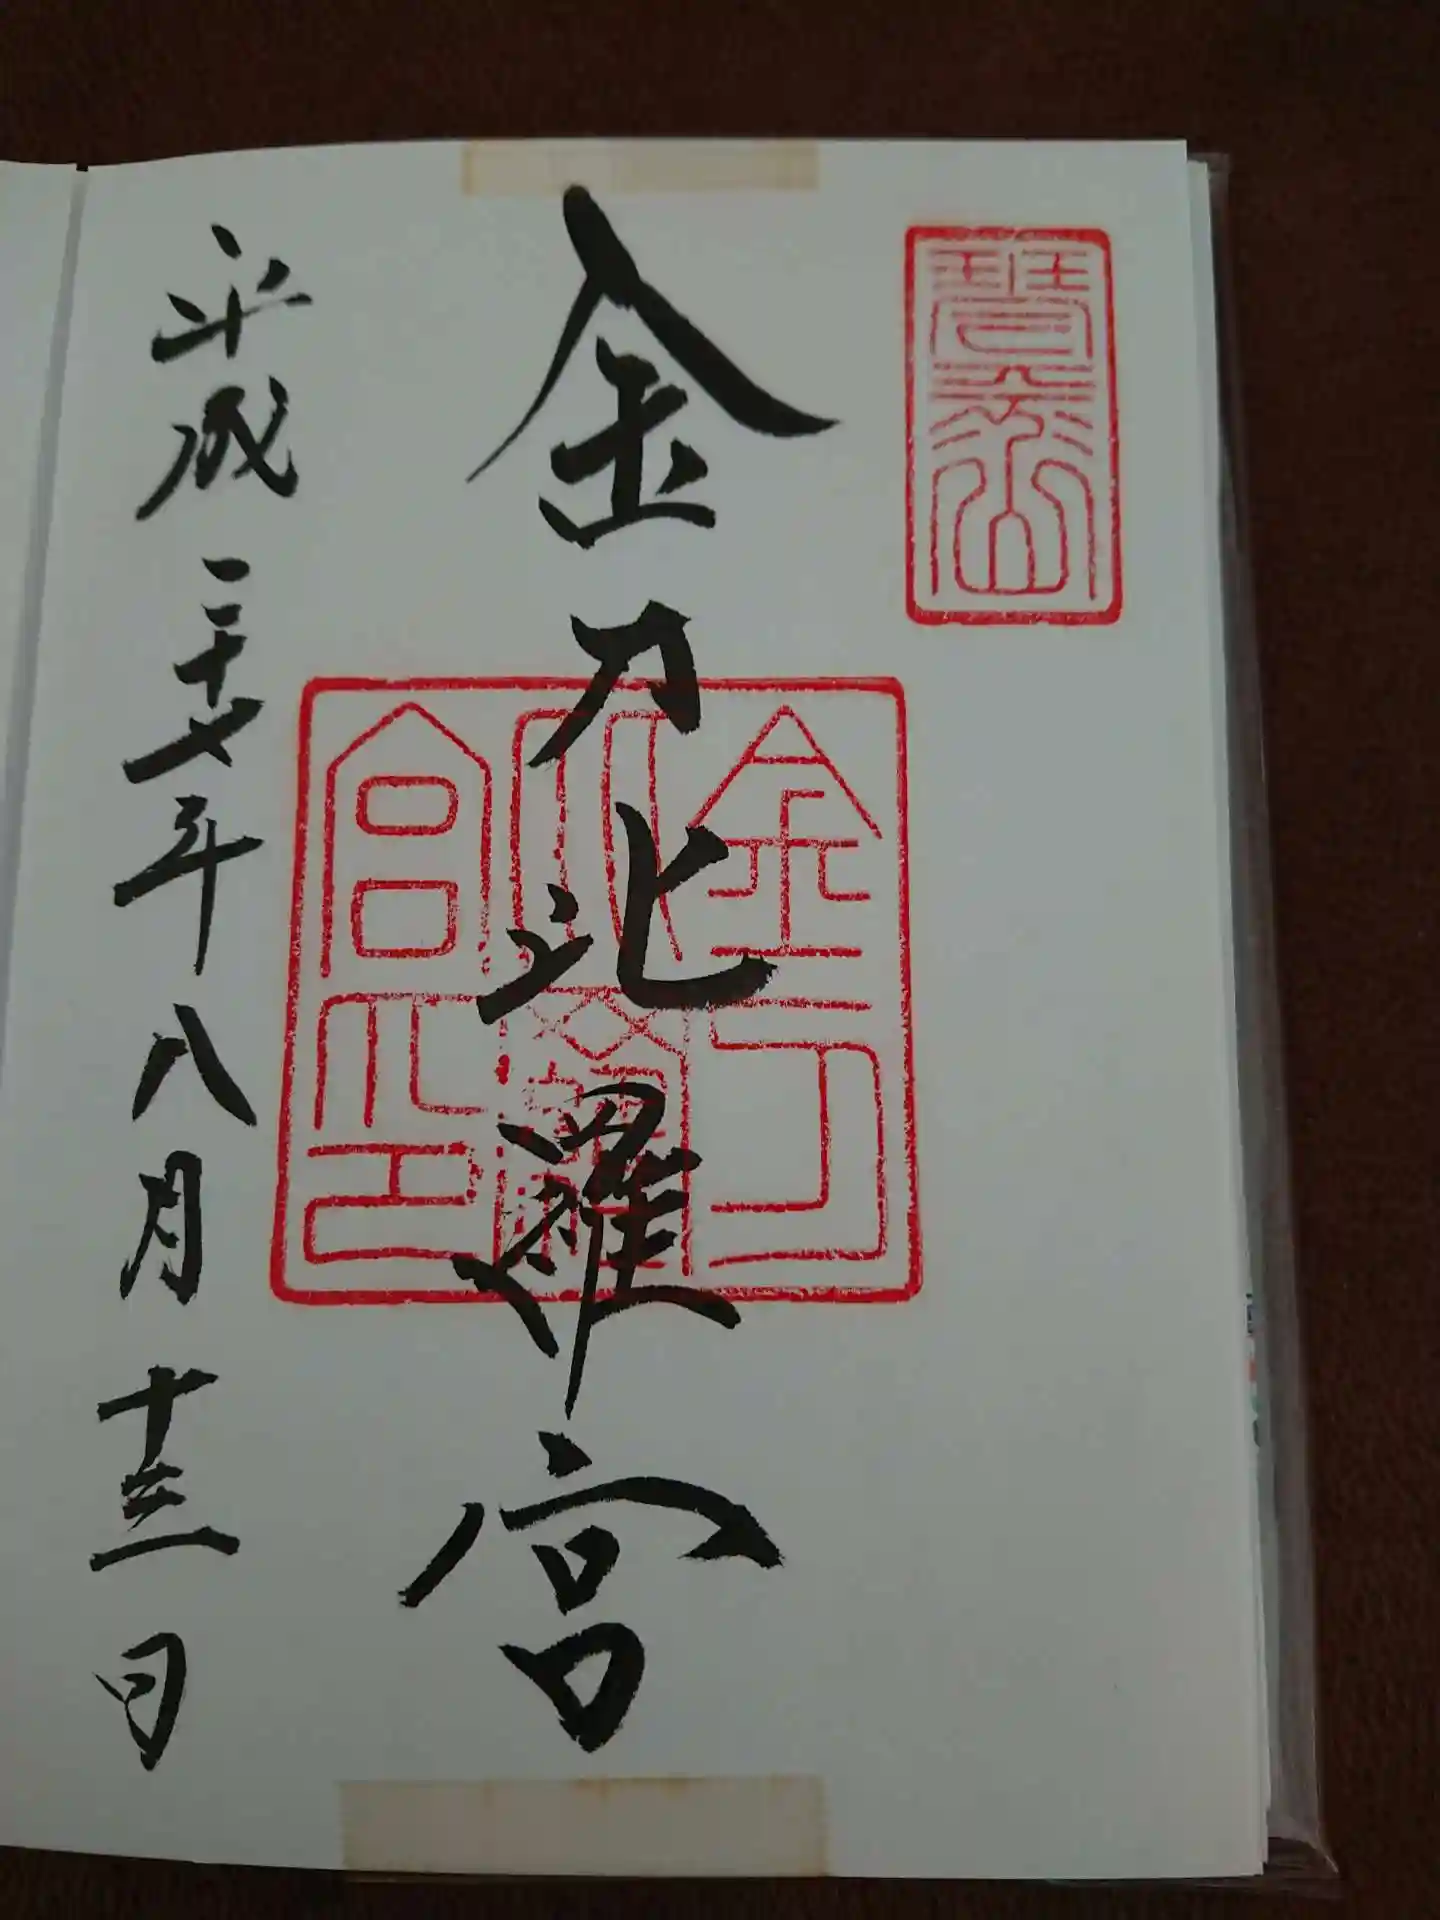 琴平山
金刀比羅宮
金刀比羅宮印
平成二十七年八月十三日